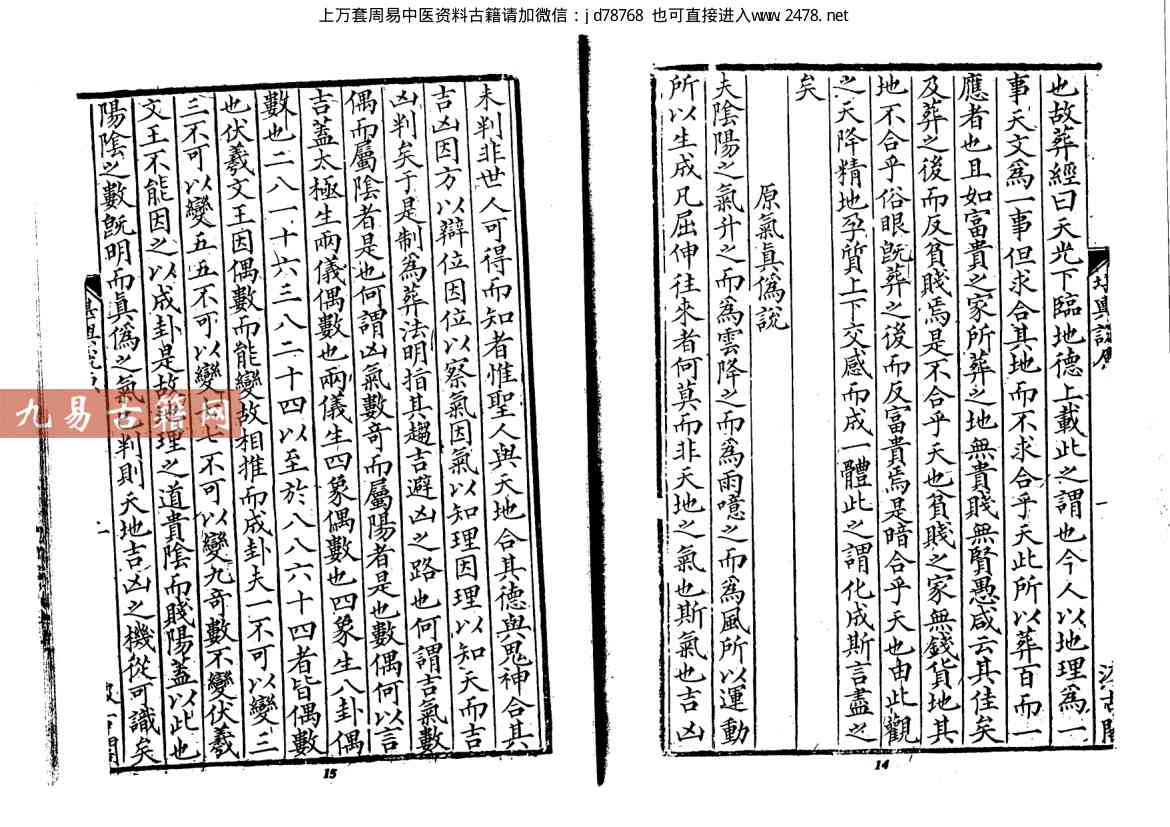 上万套周易中医资料古籍请加微信：jd78768 也可直接进入www.2478.net
也故葬經曰天光下臨地德上載此之謂也今人以地理爲一
事天文爲一事但求合其地而不求合乎天此所以葬百而一
應者也且如富貴之家所葬之地無貴賤無賢愚咸云其佳矣
及葬之後而反貧賤焉是不合乎天也貧賤之家無錢貨地其
地不合乎俗眼旣葬之後而反富貴焉是暗合乎天也由此觀
之天降精地孕質上下交感而成一體此之謂化成斯言盡之
矣
原氣眞僞說
夫陰陽之氣升之而爲雲降之而爲雨噫之而爲風所以運動
所以生成凡屈伸往來者何莫而非天地之氣也斯氣也吉凶
14
未判非世人可得而知者惟聖人與天地合其德與鬼神合其
吉凶因方以辯位因位以察氣因氣以知理因理以知天而吉
凶判矣于是制爲葬法明指其趨吉避凶之路也何謂吉氣數
偶而屬陰者是也何謂凶氣數奇而屬陽者是也數偶何以言
吉蓋太極生兩儀偶數也兩儀生四象偶數也四象生八卦偶
數也二八一十六三八二十四以至於八八六十四者皆偶數
也伏羲文王因偶數而能變故相推而成卦夫一不可以變三
三不可以變五五不可以變七七不可以變九奇數不變伏羲
文王不能因之以成卦是故地理之道貴陰而賤陽蓋以此也
陽陰之數旣明而眞僞之氣已判則天地吉凶之機從可識矣
15
九易古籍网